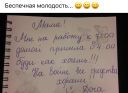 Беспечная молодость...
Мама!
Мне на работу к 7.00
домой пришла в 4.00
буди как хочешь!!!
На войне все средства
хороши.